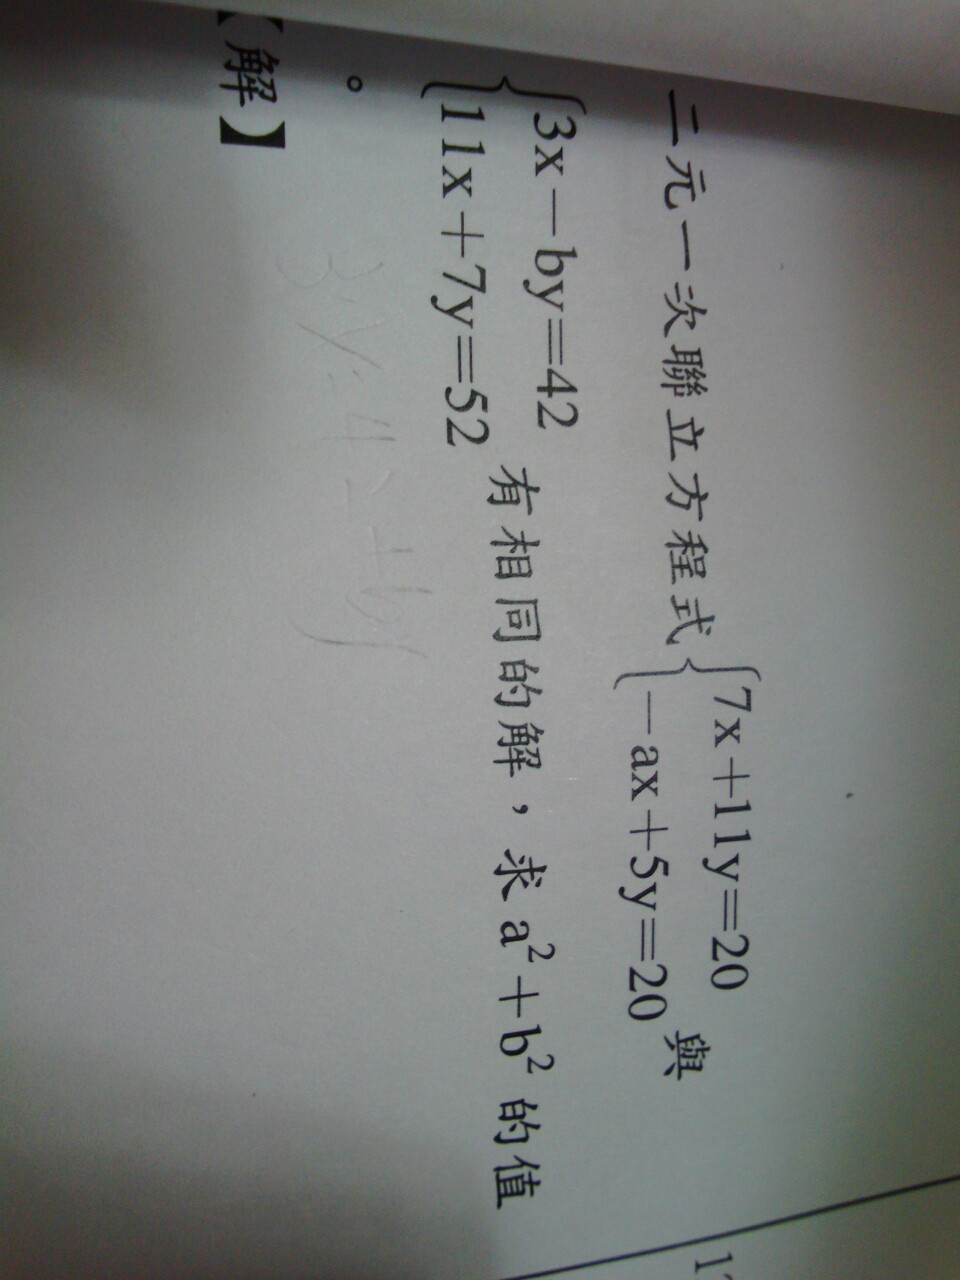 二元一次聯立方程式{7x+11y=20
-ax+5y=20 與
{3x-by=42
11x+7y=52 有相同的解，求a²+b²的值
。
【解】
3x=42+by